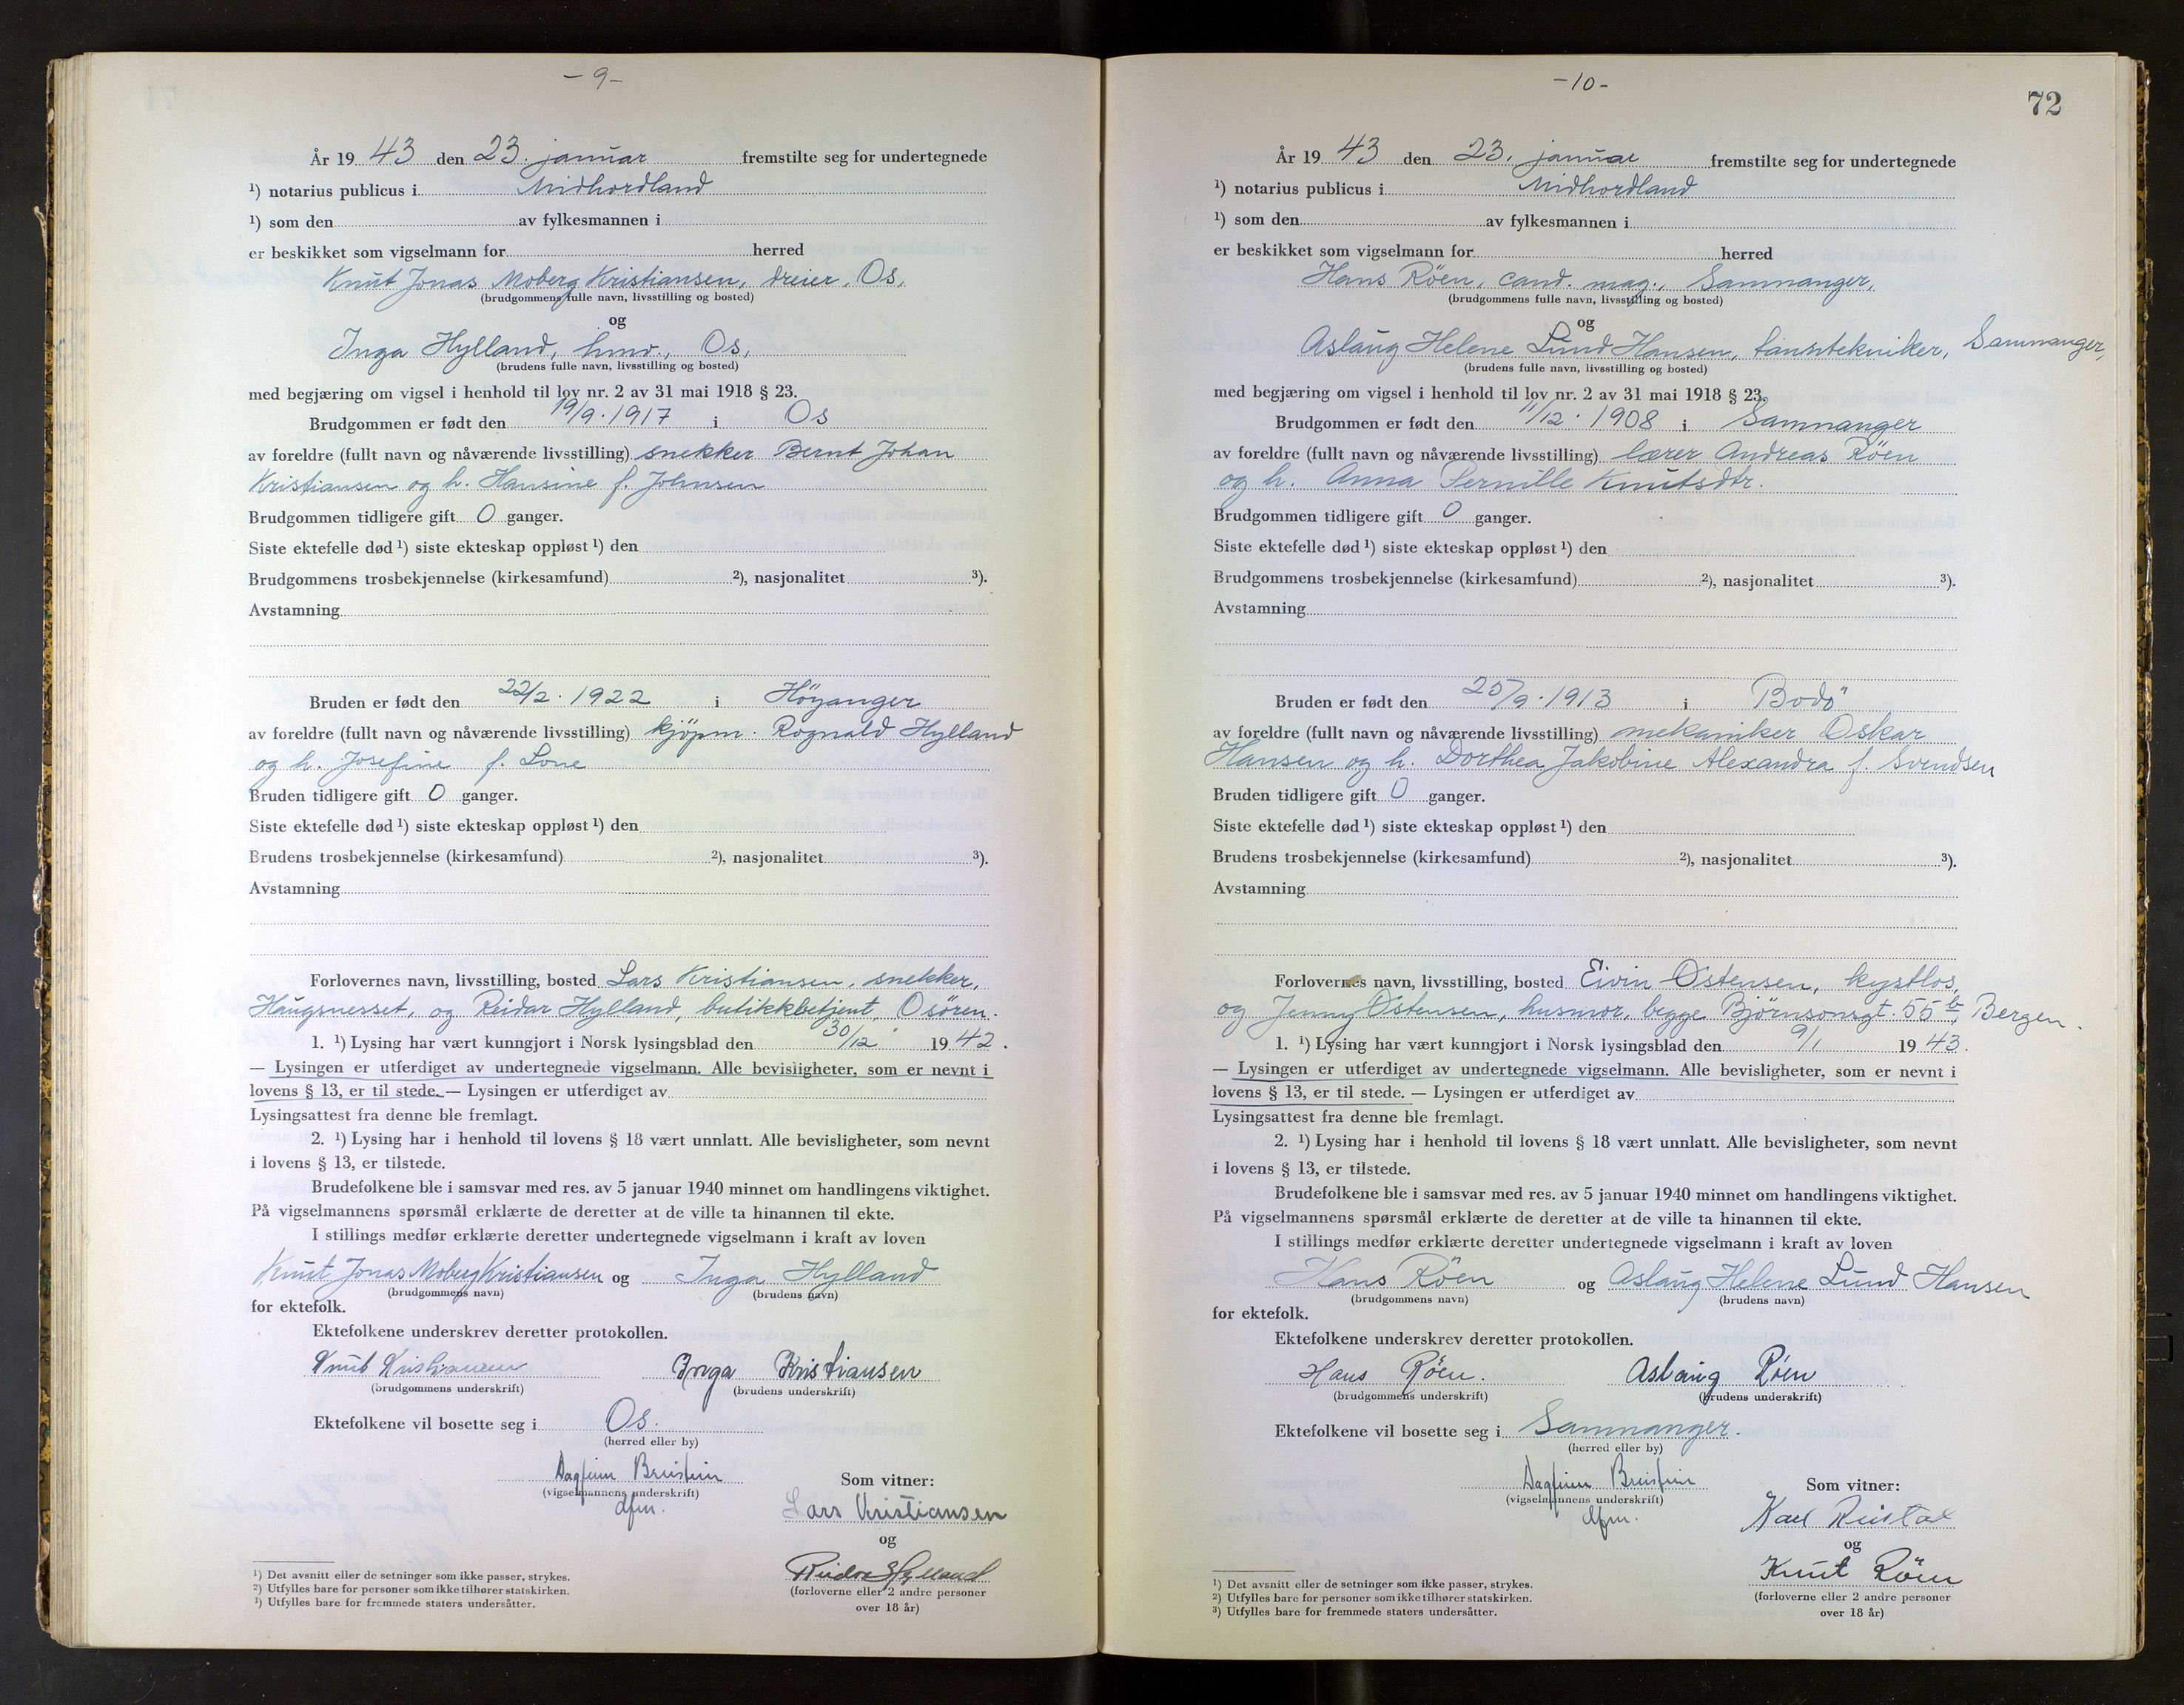 - 9 -
År 19 43 den 23. januar fremstilte seg for undertegnede
¹) notarius publicus i Midhordland
¹) som den av fylkesmannen i
er beskikket som vigselmann for herred
Knut Jonas Moberg Kristiansen, dreier, Os,
(brudgommens fulle navn, livsstilling og bosted)
og
Inga Hylland, hmd., Os,
(brudens fulle navn, livsstilling og bosted)
med begjæring om vigsel i henhold til lov nr. 2 av 31 mai 1918 § 23.
Brudgommen er født den 19/9. 1917 i Os
av foreldre (fullt navn og nåværende livsstilling) snekker Bernt Johan
Kristiansen og h. Hansine f. Johnsen
Brudgommen tidligere gift 0 ganger.
Siste ektefelle død ¹) siste ekteskap oppløst ¹) den
Brudgommens trosbekjennelse (kirkesamfund) ²), nasjonalitet ³).
Avstamning
Bruden er født den 22/2. 1922 i Höyanger
av foreldre (fullt navn og nåværende livsstilling) kjöpm. Rognald Hylland
og h. Josefine f. Lone
Bruden tidligere gift 0 ganger.
Siste ektefelle død ¹) siste ekteskap oppløst ¹) den
Brudens trosbekjennelse (kirkesamfund) ²), nasjonalitet ³).
Avstamning
Forlovernes navn, livsstilling, bosted Lars Kristiansen, snekker,
Haugsnesset, og Reidar Hylland, butikkbetjent, Osören.
1. ¹) Lysing har vært kunngjort i Norsk lysingsblad den 30/12 19 42.
— Lysingen er utferdiget av undertegnede vigselmann. Alle bevisligheter, som er nevnt i
lovens § 13, er til stede. — Lysingen er utferdiget av
Lysingsattest fra denne ble fremlagt.
2. ¹) Lysing har i henhold til lovens § 18 vært unnlatt. Alle bevisligheter, som nevnt
i lovens § 13, er tilstede.
Brudefolkene ble i samsvar med res. av 5 januar 1940 minnet om handlingens viktighet.
På vigselmannens spørsmål erklærte de deretter at de ville ta hinannen til ekte.
I stillings medfør erklærte deretter undertegnede vigselmann i kraft av loven
Knut Jonas Moberg Kristiansen og Inga Hylland
(brudgommens navn) (brudens navn)
for ektefolk.
Ektefolkene underskrev deretter protokollen.
Knut Kristiansen Inga Kristiansen
(brudgommens underskrift) (brudens underskrift)
Ektefolkene vil bosette seg i Os.
(herred eller by)
Dagfinn Breistein
(vigselmannens underskrift)
dfm.
Som vitner:
Lars Kristiansen
og
Reidar Hylland
(forloverne eller 2 andre personer
over 18 år)
¹) Det avsnitt eller de setninger som ikke passer, strykes.
²) Utfylles bare for personer som ikke tilhører statskirken.
³) Utfylles bare for fremmede staters undersåtter.
- 10 -
72
År 19 43 den 23. januar fremstilte seg for undertegnede
¹) notarius publicus i Midhordland
¹) som den av fylkesmannen i
er beskikket som vigselmann for herred
Hans Röen, cand. mag., Samnanger,
(brudgommens fulle navn, livsstilling og bosted)
og
Aslaug Helene Lund Hansen, tanntekniker, Samnanger,
(brudens fulle navn, livsstilling og bosted)
med begjæring om vigsel i henhold til lov nr. 2 av 31 mai 1918 § 23.
Brudgommen er født den 11/12. 1908 i Samnanger
av foreldre (fullt navn og nåværende livsstilling) lærer Andreas Röen
og h. Anna Pernille Knutsdtr.
Brudgommen tidligere gift 0 ganger.
Siste ektefelle død ¹) siste ekteskap oppløst ¹) den
Brudgommens trosbekjennelse (kirkesamfund) ²), nasjonalitet ³).
Avstamning
Bruden er født den 25/9. 1913 i Bodö
av foreldre (fullt navn og nåværende livsstilling) mekaniker Oskar
Hansen og h. Dorthea Jakobine Alexandra f. Svendsen
Bruden tidligere gift 0 ganger.
Siste ektefelle død ¹) siste ekteskap oppløst ¹) den
Brudens trosbekjennelse (kirkesamfund) ²), nasjonalitet ³).
Avstamning
Forlovernes navn, livsstilling, bosted Eivin Østensen, kystlos,
og Jenny Østensen, husmor, begge Bjørnsonsgt. 55 b, Bergen.
1. ¹) Lysing har vært kunngjort i Norsk lysingsblad den 9/1 19 43.
— Lysingen er utferdiget av undertegnede vigselmann. Alle bevisligheter, som er nevnt i
lovens § 13, er til stede. — Lysingen er utferdiget av
Lysingsattest fra denne ble fremlagt.
2. ¹) Lysing har i henhold til lovens § 18 vært unnlatt. Alle bevisligheter, som nevnt
i lovens § 13, er tilstede.
Brudefolkene ble i samsvar med res. av 5 januar 1940 minnet om handlingens viktighet.
På vigselmannens spørsmål erklærte de deretter at de ville ta hinannen til ekte.
I stillings medfør erklærte deretter undertegnede vigselmann i kraft av loven
Hans Röen og Aslaug Helene Lund Hansen
(brudgommens navn) (brudens navn)
for ektefolk.
Ektefolkene underskrev deretter protokollen.
Hans Röen. Aslaug Röen
(brudgommens underskrift) (brudens underskrift)
Ektefolkene vil bosette seg i Samnanger.
(herred eller by)
Dagfinn Breistein
(vigselmannens underskrift)
dfm.
Som vitner:
og
Knut Röen
(forloverne eller 2 andre personer
over 18 år)
¹) Det avsnitt eller de setninger som ikke passer, strykes.
²) Utfylles bare for personer som ikke tilhører statskirken.
³) Utfylles bare for fremmede staters undersåtter.